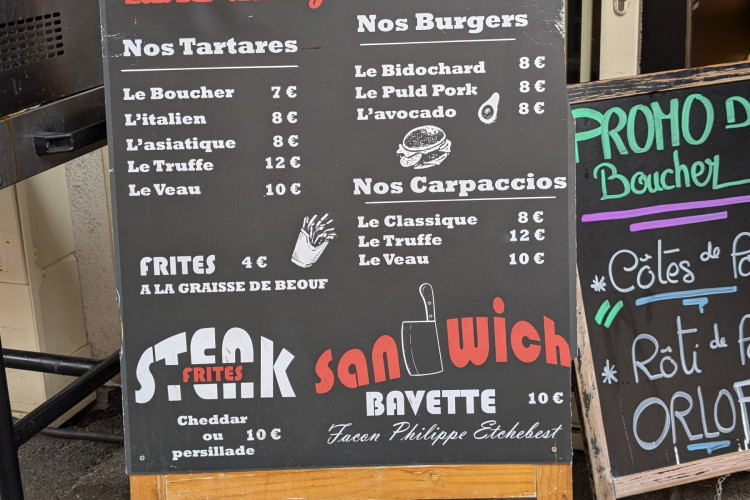 Nos Tartares
Le Boucher 7 €
L'italien 8 €
L'asiatique 8 €
Le Truffe 12 €
Le Veau 10 €
FRITES 4 €
A LA GRAISSE DE BEOUF
STEAK
FRITES
Cheddar
ou 10 €
persillade
Nos Burgers
Le Bidochard 8 €
Le Puld Pork 8 €
L'avocado 8 €
Nos Carpaccios
Le Classique 8 €
Le Truffe 12 €
Le Veau 10 €
sandwich
BAVETTE 10 €
Facon Philippe Etchebest
PROMO D
Boucher
* Côtes de
* Rôti de
ORLOF